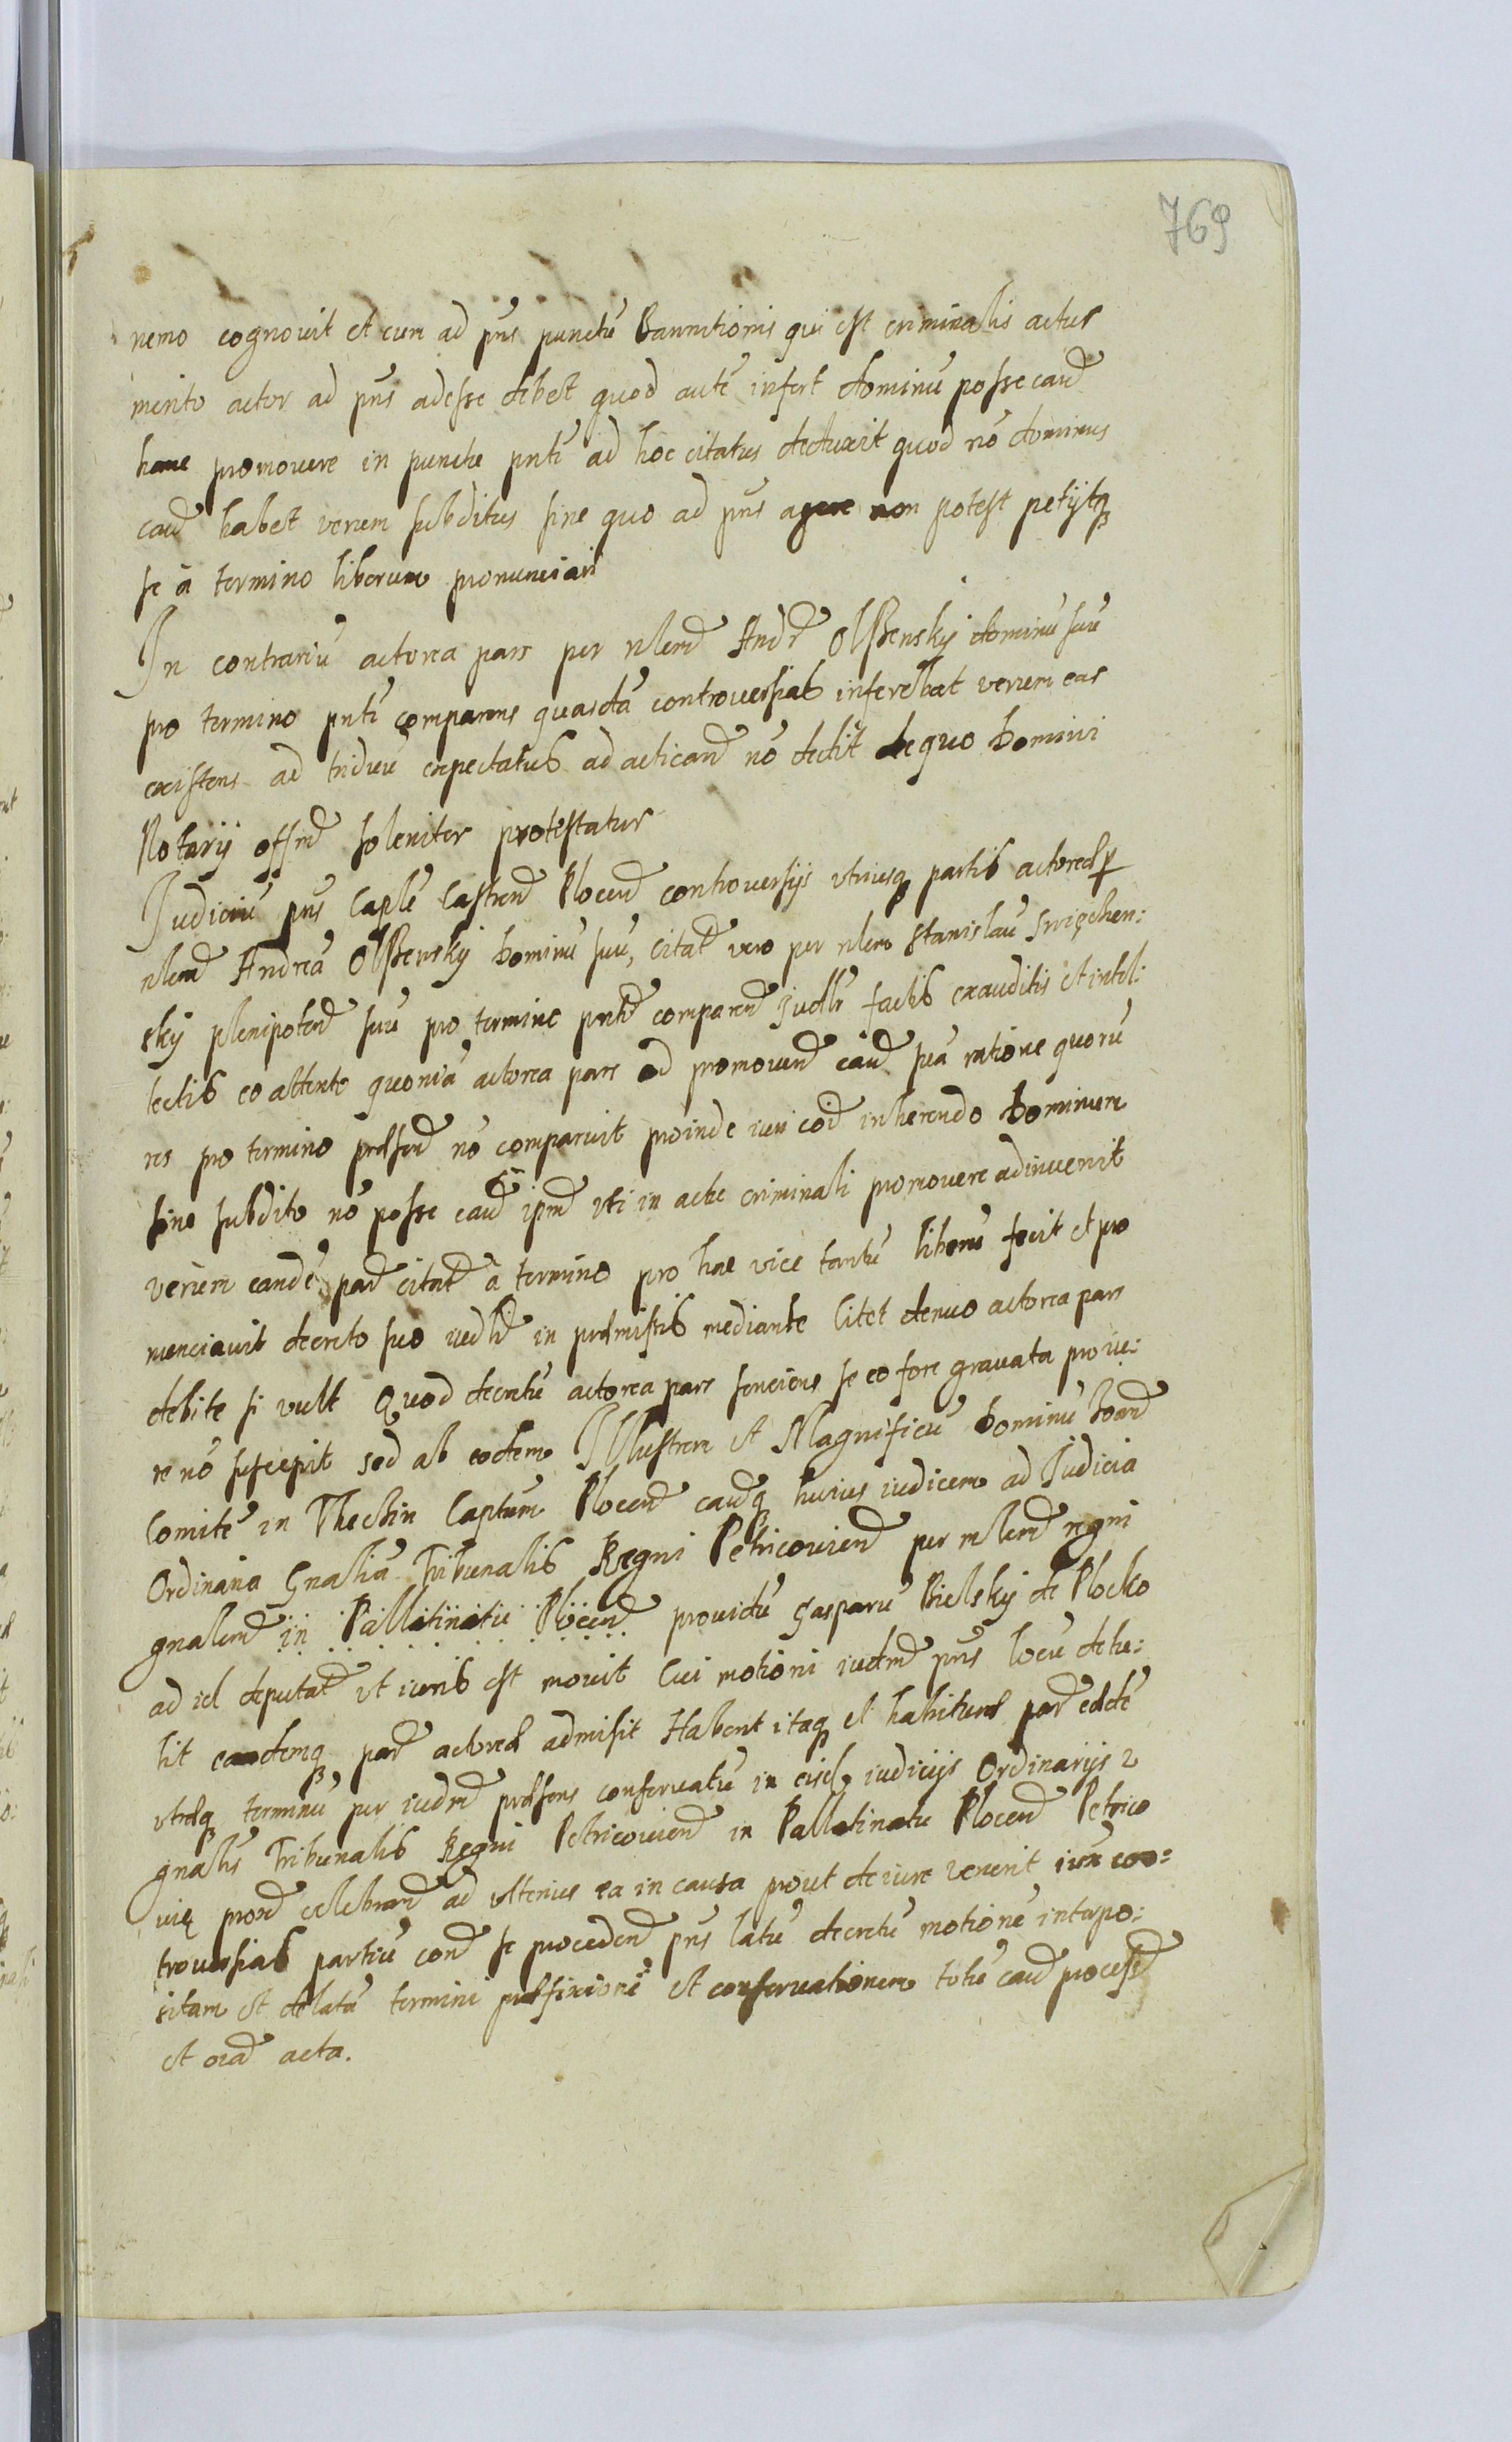 769
nemo cognovit et cum ad pñs punctũ Bannitionis qui est criminalis actus
merito actor ad pñs adesse debet quod autẽ infert dominũ posse cau͠d
hanc promovere in puncto pnti ad hoc citatus deduxit quod nõ dominus
cau͠d habet verum subditus sine quo ad pñs agere non potest petijtq̃
se á termino liberum pronunciari
In contrariũ actorea pars per nlem͠d Andr͠ Olßensky dominũ suũ
pro termino pnti comparens quasdã controversias inferebat verum eas
existens ad triduũ expectatus ad actican͠d nõ dedit de quo Domini
Notarij off͠m soleniter protestatur
Judiciũ pñs Caplẽ Castren͠ Plocen͠ controversijs utriusq̃ partis actoreæ p
nlem͠ Andreã Olßensky Dominũ suũ, Citat͠ vero per nlem Stanislaũ Swięchen:
sky plenipoten͠ suũ pro termino pnt͠ comparen͠ Judlr factis exauditis et intel:
lectis eo attento quoniã actorea pars ad promoven͠ cau͠ suã ratione quorũ
res pro termino præsen͠ nõ comparuit proinde iuri co͠i inherendo Dominum
sine subdito nõ posse cau͠ ipm͠ uti in actu criminali promovere adinvenit
verum eandẽ par͠ citat͠ á termino pro hac vice tantũ liberũ fecit et pro
nunciavit decreto suo iudl͠i in præmissis mediante Citet denuo actorea pars
debite si vult Quod decretũ actorea pars senciens se eo fore gravata pro iu:
re nõ suscepit sed ab eodem Illustrem et Magnificũ Dominũ Joan͠
Comitẽ in Thechin Captum Plocen͠ cau͠q̃ huius iudicem ad Judicia
Ordinaria Gnaliã Tribunalis Regni Petricovien͠ per mlem͠ regni
gnalem͠ in Pallatinatu Plocen͠ providũ Gasparũ Bielsky de Plocko
ad id deputat͠ ut iuris est movit Cui motioni iudm͠ pñs locũ detu:
lit eandemq̃ par͠ actoreã admisit Habent itaq̃ et habituræ par͠ eædẽ
utræq̃ terminũ per iudm͠ præsens conservatũ in eisd͠ iudicijs Ordinarijs 2
gnalis Tribunalis Regni Petricovien͠ in Pallatinatu Plocen͠ Petrico
vię prox͠ celebran͠ ad ulterius ea in causa prout de iure venerit iux̃ con:
troversias partiũ con͠ se proceden͠ pñs latũ decretũ motionẽ interpo:
sitam et delatã termini præfixionẽ et conservationem totũ cau͠ process͠
et oia͠ acta.